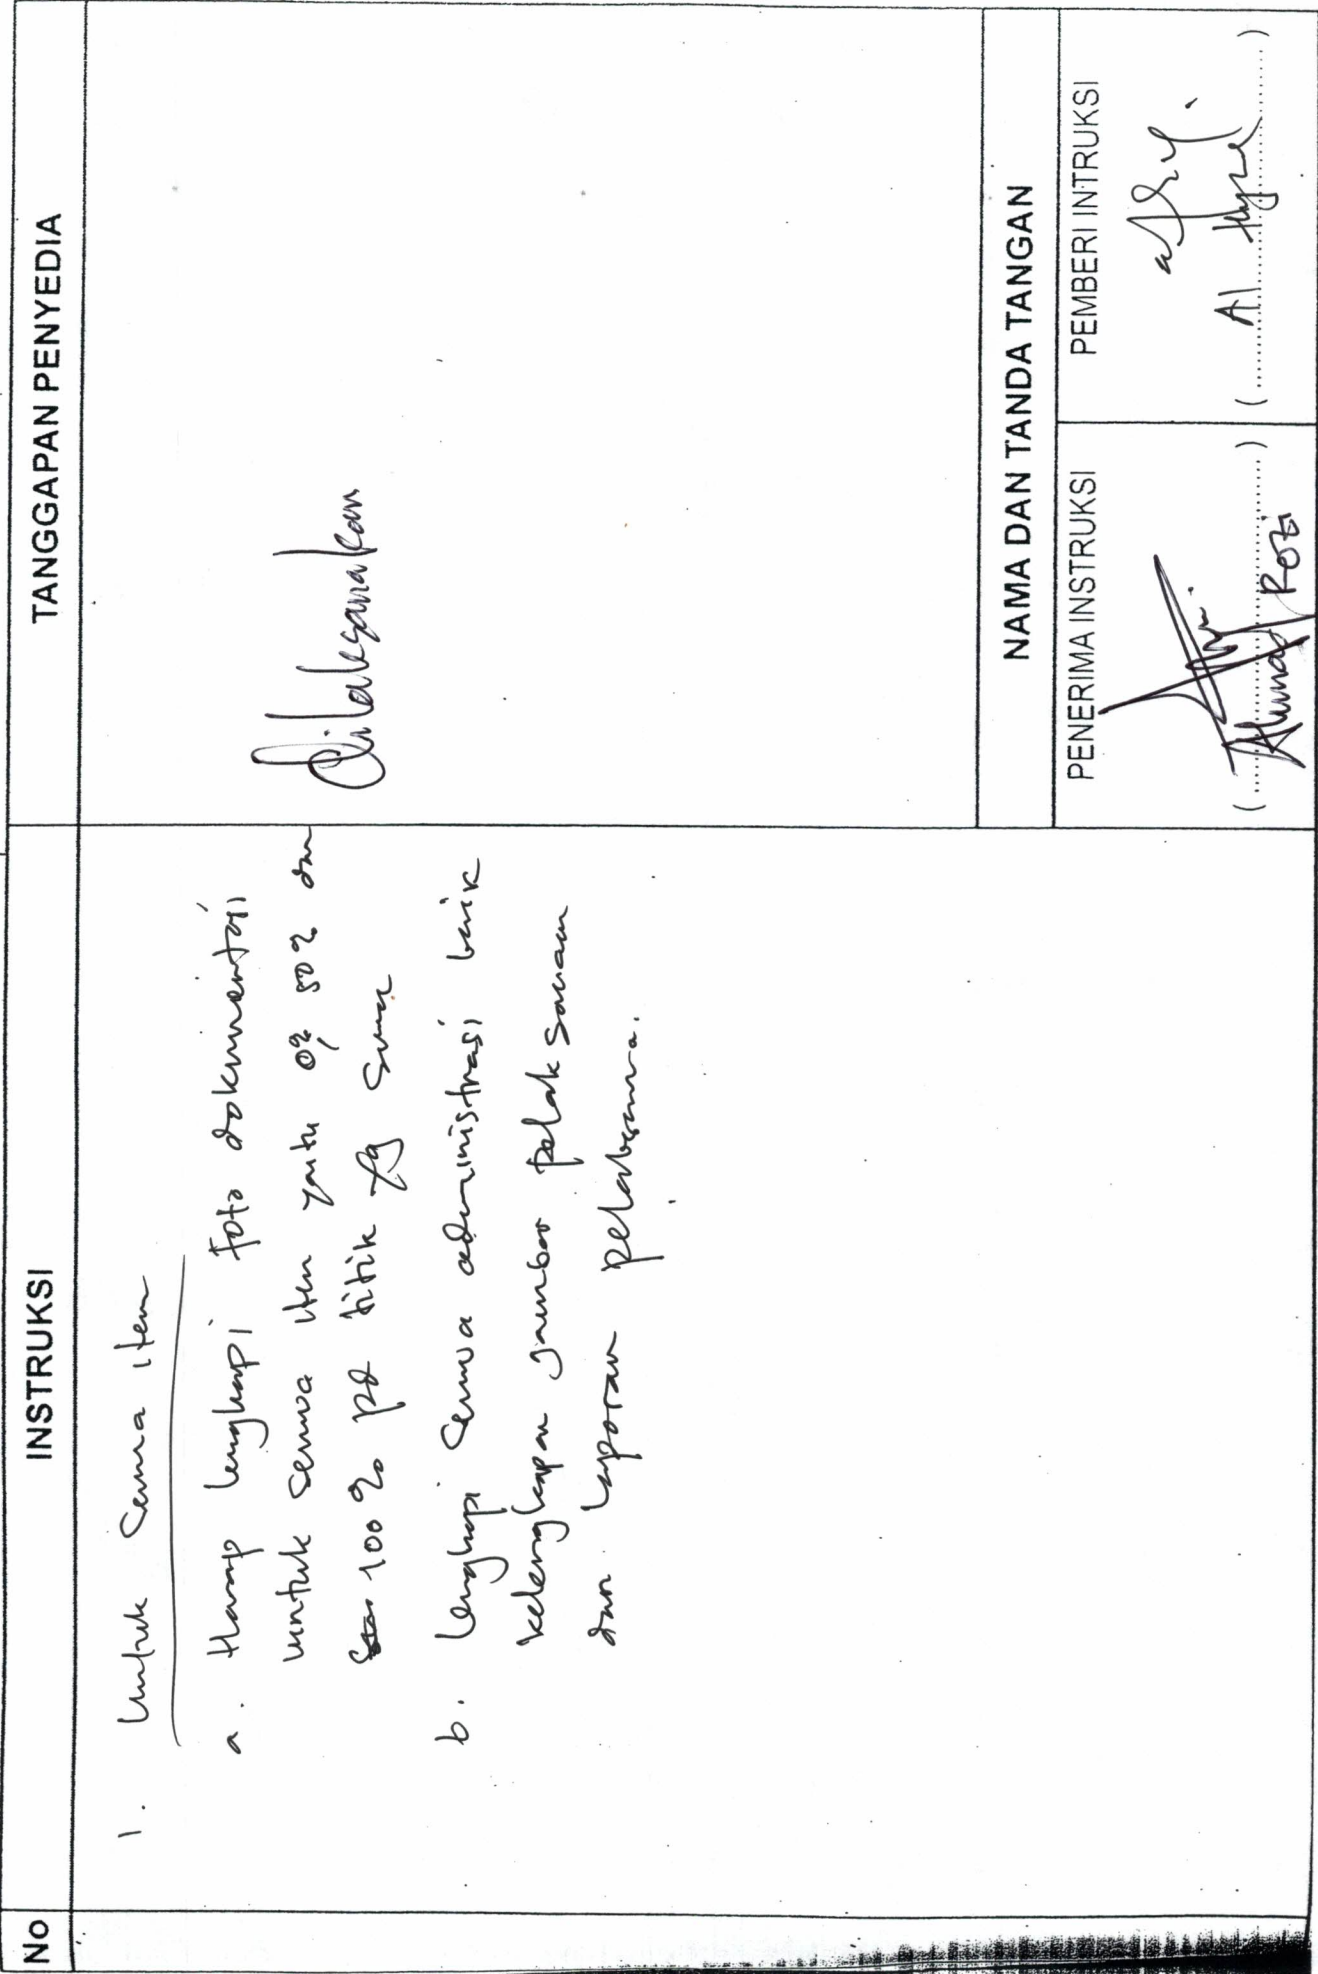 No
INSTRUKSI
TANGGAPAN PENYEDIA
1. Untuk Semua item
a. Harap lengkapi foto dokumentasi
untuk semua item yaitu 0% 50% dan
100% pd titik yg sama
b. lengkapi semua administrasi baik
kelengkapan gambar pelaksanaan
dan laporan pelaksanaan.
Dilaksanakan
NAMA DAN TANDA TANGAN
PENERIMA INSTRUKSI
PEMBERI INTRUKSI
(..........................)
Rozi
(..........................)
Al